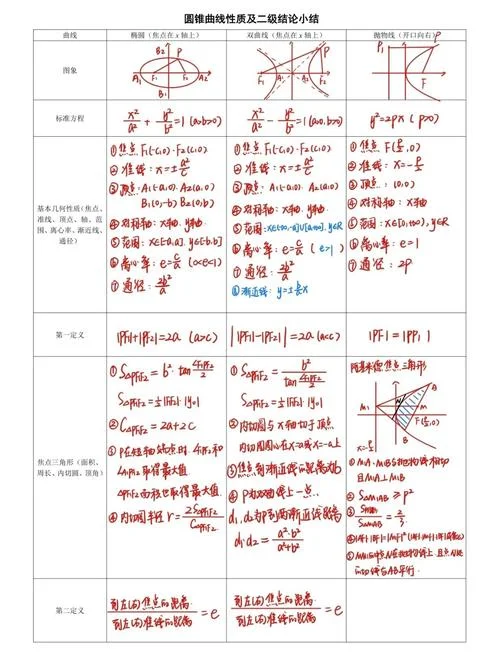 圆锥曲线性质及二级结论小结
曲线
椭圆（焦点在 x 轴上）
双曲线（焦点在 x 轴上）
抛物线（开口向右）
图象
B2
P
A1
F1
F2
A2
B1
P
A1
F1
F2
P1
P
F
标准方程
x²/a² + y²/b² = 1 (a>b>0)
x²/a² - y²/b² = 1 (a>0, b>0)
y²=2px (p>0)
基本几何性质（焦点、
准线、顶点、轴、范
围、离心率、渐近线、
通径）
① 焦点 F1(-c,0)·F2(c,0)
② 准线: x=±a²/c
③ 顶点: A1(-a,0) A2(a,0)
B1(0,-b) B2(0,b)
④ 对称轴: x轴. y轴
⑤ 范围: x∈[-a,a]. y∈[-b,b]
⑥ 离心率: e=c/a (0<e<1)
⑦ 通径: 2b²/a
① 焦点 F1(-c,0)·F2(c,0)
② 准线: x=±a²/c
③ 顶点: A1(-a,0) A2(a,0)
④ 对称轴: x轴. y轴
⑤ 范围: x∈(-∞,-a]∪[a,+∞), y∈R
⑥ 离心率: e=c/a (e>1)
⑦ 通径: 2b²/a
⑧ 渐近线: y=±b/a x
① 焦点 F(p/2,0)
② 准线: x=-p/2
③ 顶点: (0,0)
④ 对称轴: x轴
⑤ 范围: x∈[0,+∞), y∈R
⑥ 离心率: e=1
⑦ 通径: 2p
第一定义
|PF1|+|PF2|=2a (a>c)
||PF1|-|PF2||=2a (a<c)
|PF|=|PP1|
焦点三角形（面积、
周长、内切圆、顶角）
① S△PF1F2=b²·tan ∠F1PF2/2
S△PF1F2=½|F1F2|·|y0|
② C△PF1F2=2a+2c
③ P在短轴端点时. ∠F1PF2 和
取得最大值
△PF1F2面积也取得最大值
④ 内切圆半径 r=2S△PF1F2/C△PF1F2
① S△PF1F2=b²/tan ∠F1PF2/2
S△PF1F2=½|F1F2|·|y0|
② 内切圆与x轴切于顶点.
内切圆圆心在x=a或x=-a上
③ 焦点到渐近线的距离为b
④ P为双曲线上一点.
d1.d2为P到两渐近线距离
d1·d2=a²·b²/a²+b²
阿基米德焦点三角形
A
M1
N
M
F(p/2,0)
x=-p/2
B
① MA·MB与抛物线相切
且MA⊥MB
② S△MAB≥p²
③ =2/3
且点N处
的切线与AB平行.
第二定义
到左(右)焦点的距离/到左(右)准线的距离=e
到左(右)焦点的距离/到左(右)准线的距离=e